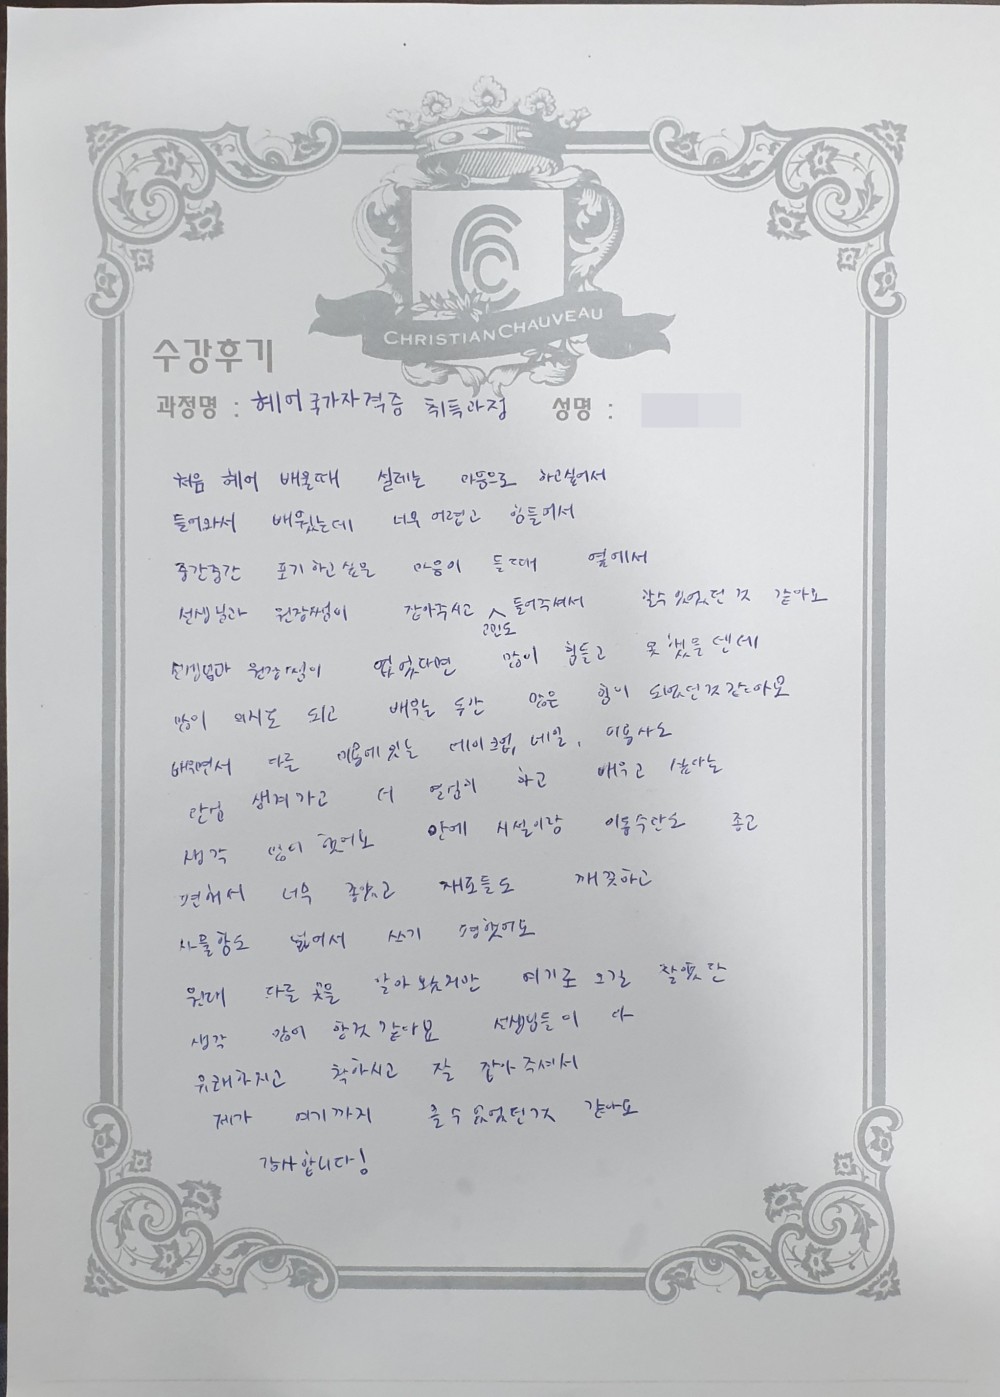 CHRISTIAN CHAUVEAU
수강후기
과정명 : 헤어 국가자격증 취득과정 성명 :
처음 헤어 배울때 설레는 마음으로 하고싶어서
들어와서 배웠는데 너무 어렵고 힘들어서
중간중간 포기하고싶은 마음이 들때 옆에서
선생님과 원장쌤이 잡아주시고 고민도 들어주셔서 할수있었던 것 같아요
선생님과 원장쌤이 없었다면 많이 힘들고 못했을텐데
많이 의지도 되고 배우는 동안 많은 힘이 되었던것같아요
배우면서 다른 미용에있는 메이크업, 네일, 미용사도
관심 생겨가고 더 열심히 하고 배우고 싶다는
생각 많이 했어요 안에 시설이랑 이동수단도 좋고
편해서 너무 좋았고 재료들도 깨끗하고
사물함도 넓어서 쓰기 편했어요
원래 다른 곳을 알아보았지만 여기로 오길 잘했단
생각 많이 한것 같아요 선생님들이 다
유쾌하시고 착하시고 잘 잡아주셔서
제가 여기까지 올수있었던것 같아요
감사합니다!